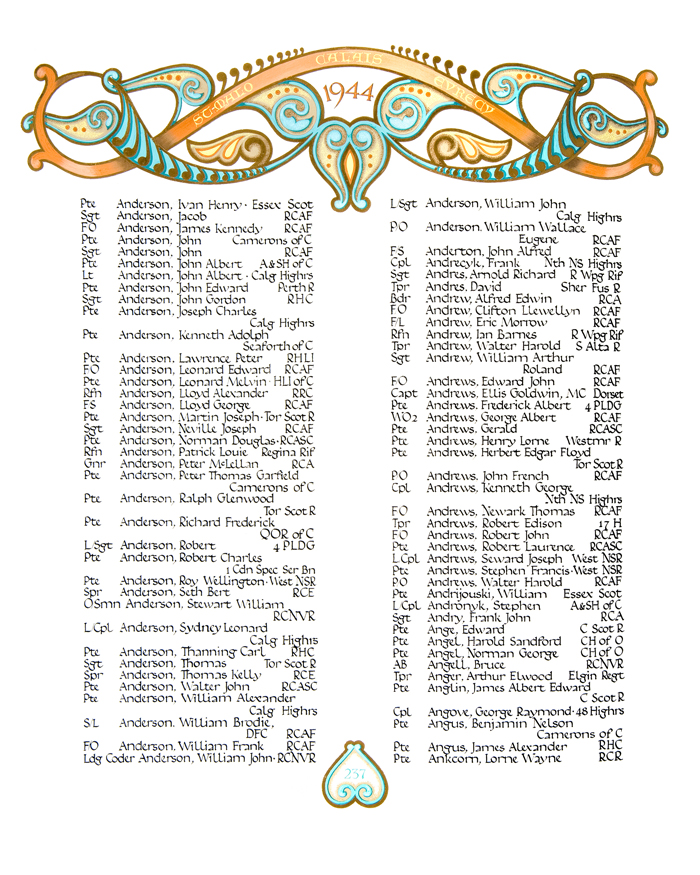 ST-MALO CALAIS EVRECY
1944
Pte Anderson, Ivan Henry · Essex Scot
Sgt Anderson, Jacob RCAF
FO Anderson, James Kennedy RCAF
Pte Anderson, John Camerons of C
Sgt Anderson, John RCAF
Pte Anderson, John Albert A&SH of C
Lt Anderson, John Albert · Calg Highrs
Pte Anderson, John Edward Perth R
Sgt Anderson, John Gordon RHC
Pte Anderson, Joseph Charles
Calg Highrs
Pte Anderson, Kenneth Adolph
Seaforth of C
Pte Anderson, Lawrence Peter RHLI
FO Anderson, Leonard Edward RCAF
Pte Anderson, Leonard Melvin · HLI of C
Rfn Anderson, Lloyd Alexander RRC
FS Anderson, Lloyd George RCAF
Pte Anderson, Martin Joseph · Tor Scot R
Sgt Anderson, Neville Joseph RCAF
Pte Anderson, Norman Douglas · RCASC
Rfn Anderson, Patrick Louie Regina Rif
Gnr Anderson, Peter McLellan RCA
Pte Anderson, Peter Thomas Garfield
Camerons of C
Pte Anderson, Ralph Glenwood
Tor Scot R
Pte Anderson, Richard Frederick
QOR of C
L Sgt Anderson, Robert 4 PLDG
Pte Anderson, Robert Charles
1 Cdn Spec Ser Bn
Pte Anderson, Roy Wellington · West NSR
Spr Anderson, Seth Bert RCE
O Smn Anderson, Stewart William
RCNVR
L Cpl Anderson, Sydney Leonard
Calg Highrs
Pte Anderson, Thanning Carl RHC
Sgt Anderson, Thomas Tor Scot R
Spr Anderson, Thomas Kelly RCE
Pte Anderson, Walter John RCASC
Pte Anderson, William Alexander
Calg Highrs
S/L Anderson, William Brodie,
DFC RCAF
FO Anderson, William Frank RCAF
Ldg Coder Anderson, William John · RCNVR
L Sgt Anderson, William John
Calg Highrs
PO Anderson, William Wallace
Eugene RCAF
FS Anderton, John Alfred RCAF
Cpl Andrecyk, Frank Nth NS Highrs
Sgt Andres, Arnold Richard R Wpg Rif
Tpr Andres, David Sher Fus R
Bdr Andrew, Alfred Edwin RCA
FO Andrew, Clifton Llewellyn RCAF
F/L Andrew, Eric Morrow RCAF
Rfn Andrew, Ian Barnes R Wpg Rif
Tpr Andrew, Walter Harold S Alta R
Sgt Andrew, William Arthur
Roland RCAF
FO Andrews, Edward John RCAF
Capt Andrews, Ellis Goldwin, MC Dorset
Pte Andrews, Frederick Albert 4 PLDG
WO2 Andrews, George Albert RCAF
Pte Andrews, Gerald RCASC
Pte Andrews, Henry Lorne Westmr R
Pte Andrews, Herbert Edgar Floyd
Tor Scot R
PO Andrews, John French RCAF
Cpl Andrews, Kenneth George
Nth NS Highrs
FO Andrews, Newark Thomas RCAF
Tpr Andrews, Robert Edison 17 H
FO Andrews, Robert John RCAF
Pte Andrews, Robert Laurence RCASC
L Cpl Andrews, Seward Joseph West NSR
Pte Andrews, Stephen Francis · West NSR
PO Andrews, Walter Harold RCAF
Pte Andrijouski, William Essex Scot
L Cpl Andronyk, Stephen A&SH of C
Sgt Andry, Frank John RCA
Pte Ange, Edward C Scot R
Pte Angel, Harold Sandford CH of O
Pte Angel, Norman George CH of O
AB Angell, Bruce RCNVR
Tpr Anger, Arthur Elwood Elgin Regt
Pte Anglin, James Albert Edward
C Scot R
Cpl Angove, George Raymond · 48 Highrs
Pte Angus, Benjamin Nelson
Camerons of C
Pte Angus, James Alexander RHC
Pte Ankcorn, Lorne Wayne RCR
237